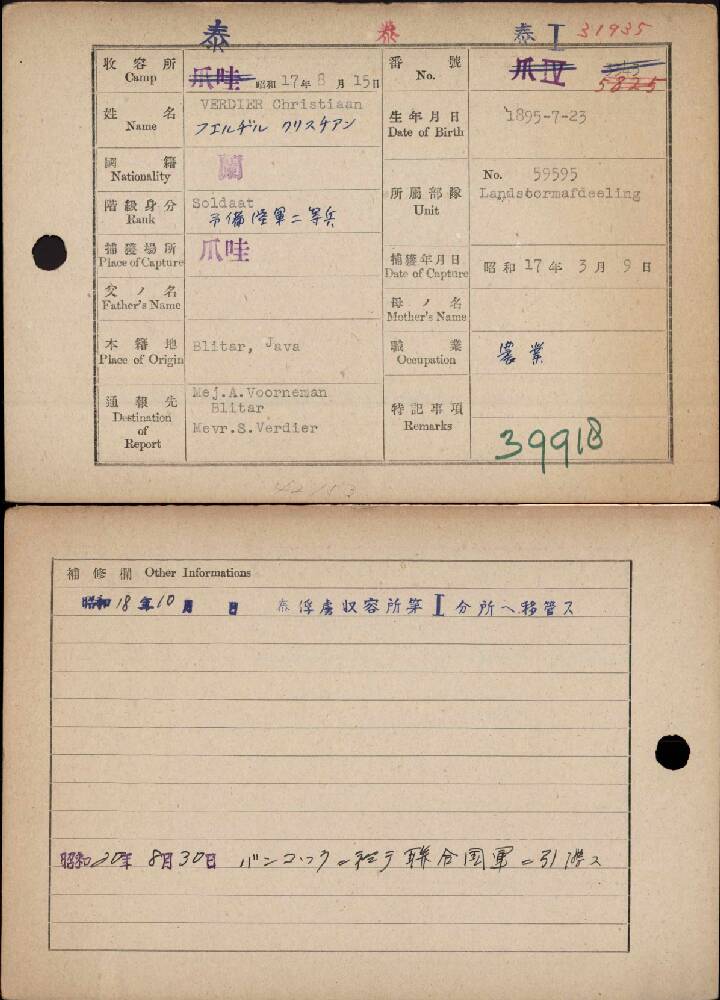 泰 泰 泰 I 31935
收容所 Camp 爪哇 昭和17年8月15日
番號 No. 爪IV 5825
姓名 Name VERDIER Christiaan
フエルヂル クリスチアン
生年月日 Date of Birth 1895-7-23
國籍 Nationality 蘭
階級身分 Rank Soldaat
予備陸軍二等兵
所屬部隊 Unit No. 59595
Landstormafdeeling
捕獲場所 Place of Capture 爪哇
捕獲年月日 Date of Capture 昭和17年3月9日
父ノ名 Father's Name
母ノ名 Mother's Name
本籍地 Place of Origin Blitar, Java
職業 Occupation 農業
通報先 Destination of Report Mej.A.Voorneman
Blitar
Mevr.S.Verdier
特記事項 Remarks
39918
補修欄 Other Informations
昭和18年10月 日 泰俘虜収容所第I分所ヘ移管ス
昭和20年8月30日 バンコック ニ於テ聯合国軍ニ引渡ス